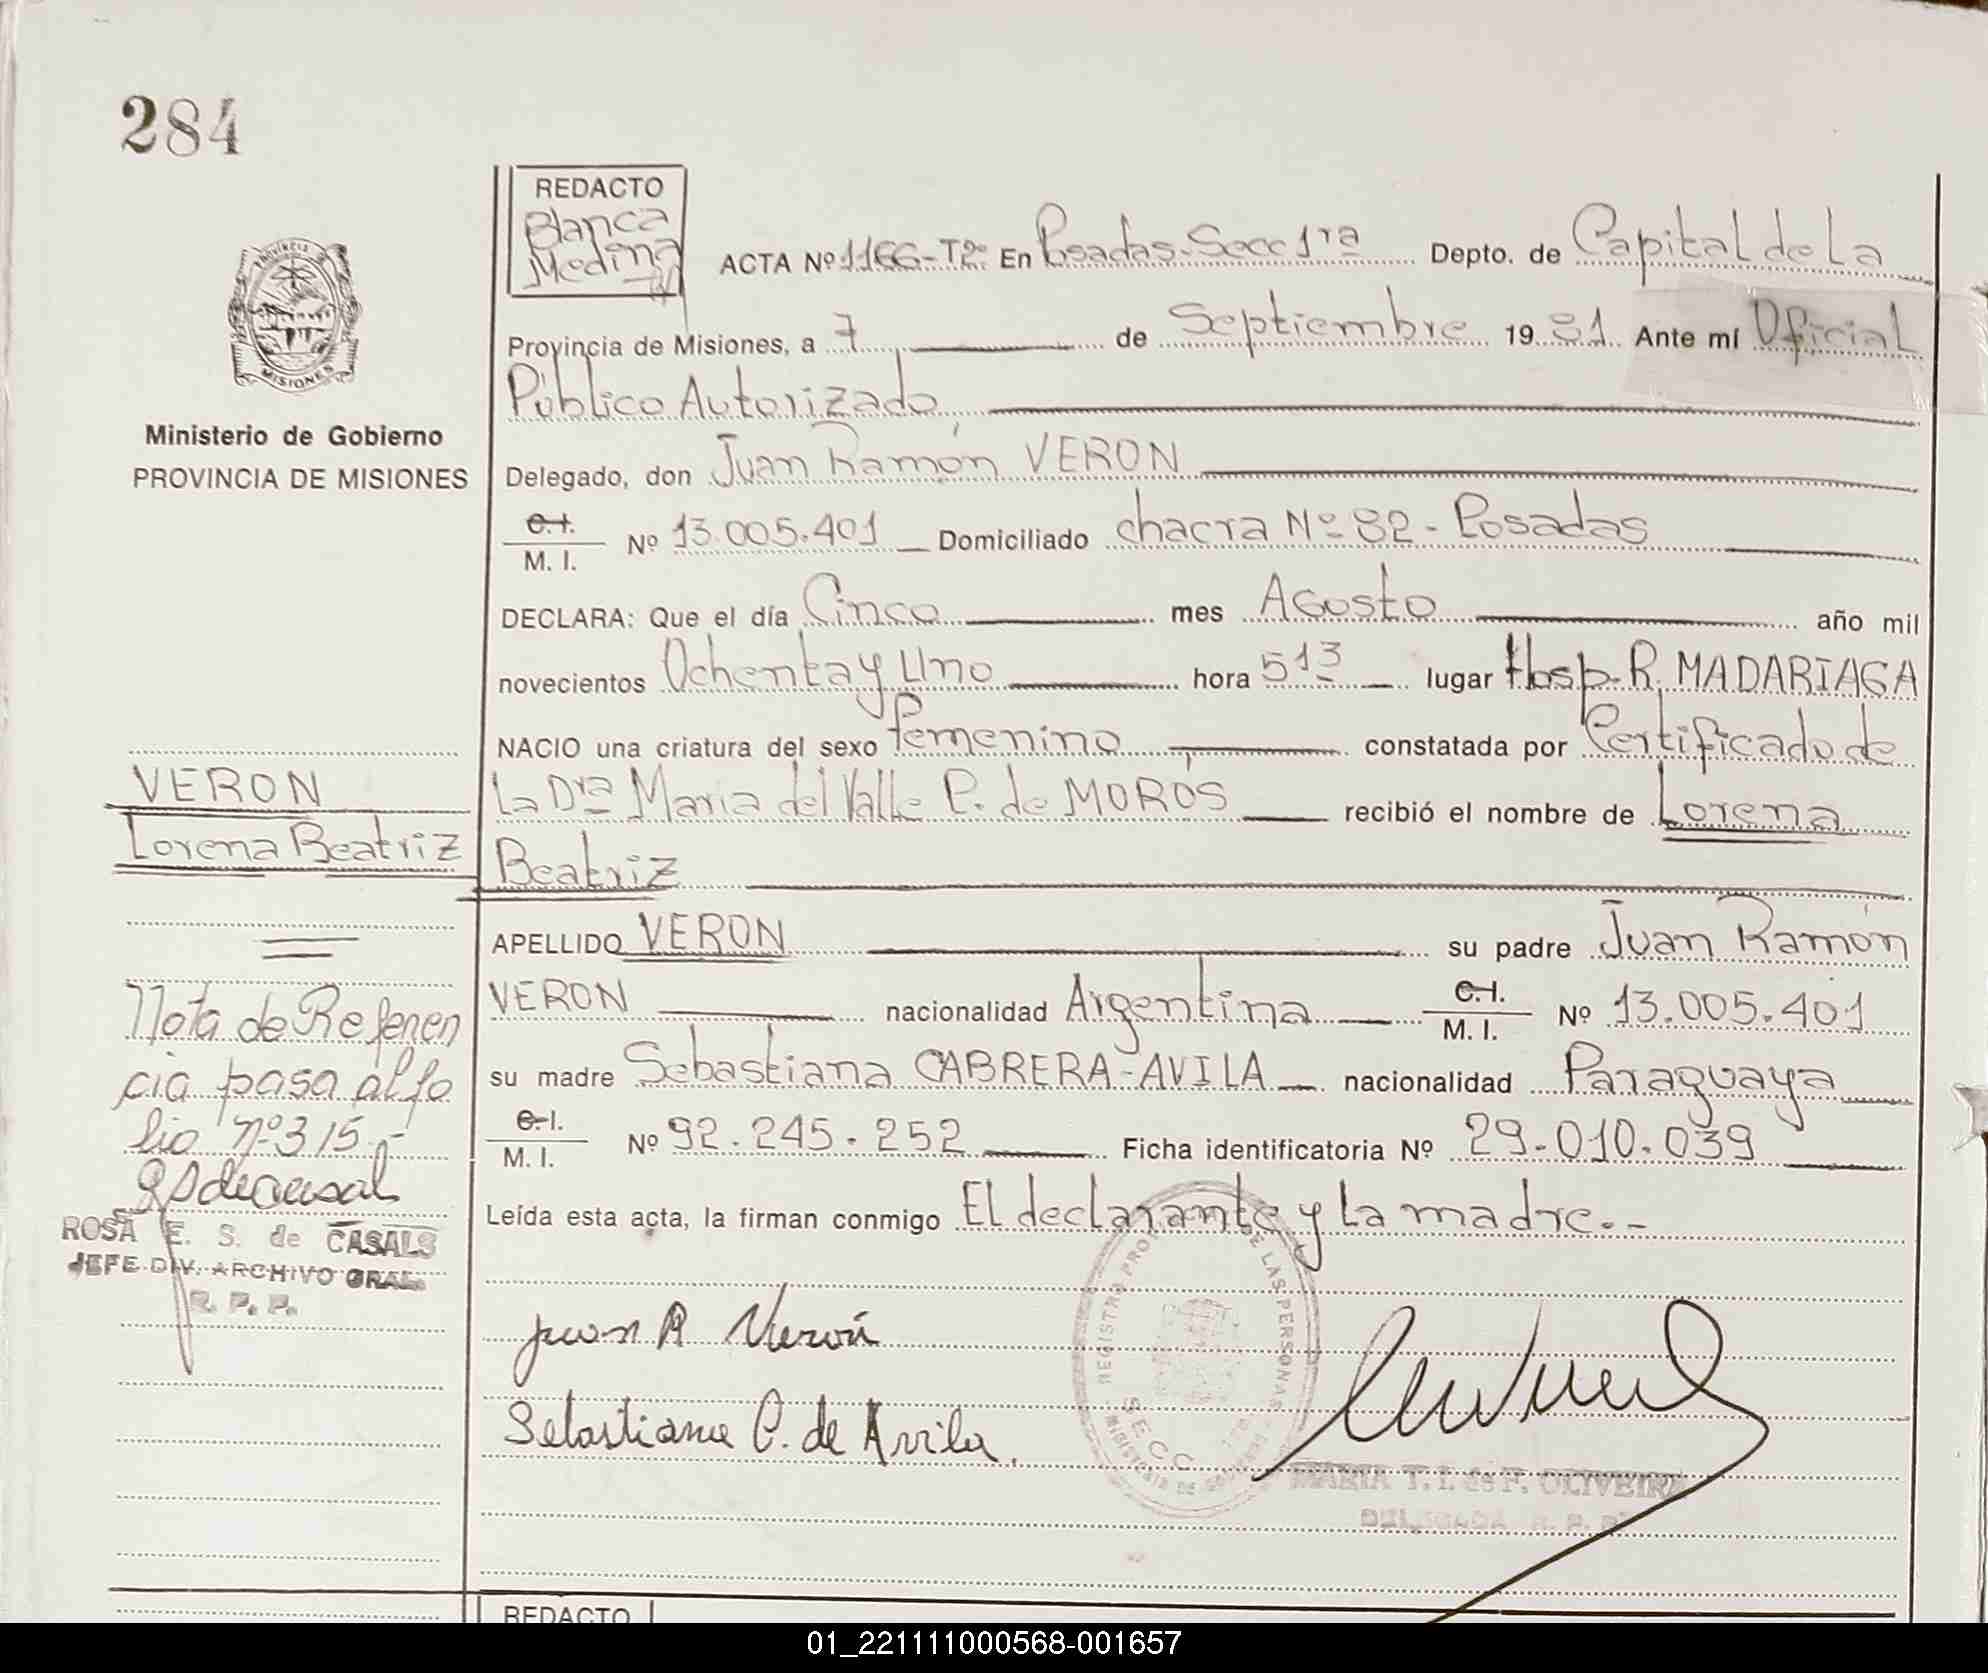 284
REDACTO
Blanca
Medina
ACTA Nº 1166-Tº2º En Posadas-Secc 1ra Depto. de Capital de La
Provincia de Misiones, a 7 de Septiembre 1981 Ante mí Oficial
Público Autorizado
Delegado, don Juan Ramón VERON
C.I. / M. I. Nº 13.005.401 Domiciliado chacra Nº 82 - Posadas
DECLARA: Que el día Cinco mes Agosto año mil
novecientos Ochenta y Uno hora 5 13 lugar Hosp. R. MADARIAGA
NACIO una criatura del sexo femenino constatada por Certificado de
La Dra Maria del Valle P. de MORÓS recibió el nombre de Lorena
Beatriz
APELLIDO VERON su padre Juan Ramón
VERON nacionalidad Argentina C.I. / M. I. Nº 13.005.401
su madre Sebastiana CABRERA-AVILA nacionalidad Paraguaya
C.I. / M. I. Nº 92.245.252 Ficha identificatoria Nº 29.010.039
Leída esta acta, la firman conmigo El declarante y La madre.-
Juan R Verón
Sebastiana C. de Avila.
PROVINCIA
MISIONES
Ministerio de Gobierno
PROVINCIA DE MISIONES
VERON
Lorena Beatriz
Nota de Referen
cia pasa al fo
lio nº 315.-
ROSA E. S. de CASALS
JEFE DIV. ARCHIVO GRAL.
R. P. P.
REGISTRO DE LAS PERSONAS
SECC
MINISTERIO DE
MARIA T. I. de F. OLIVEIRA
DELEGADA R. P. P.
REDACTO
01_221111000568-001657